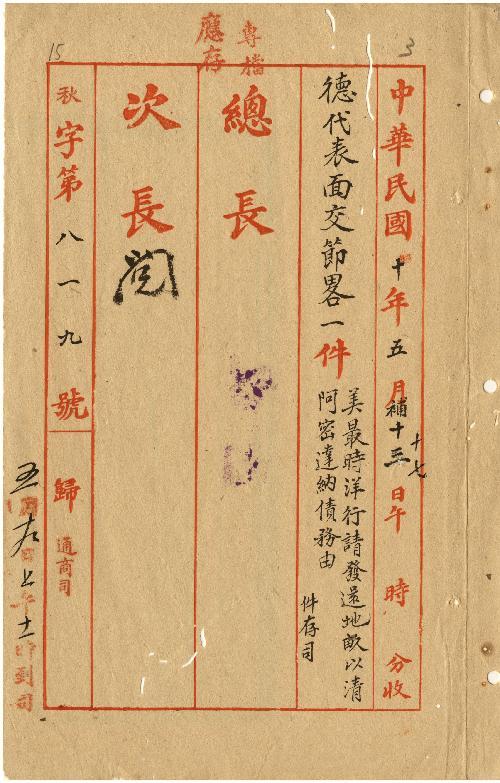 3
中華民國十年五月補十三十七日午時分收
德代表面交節畧一件
美最時洋行請發還地畝以清
阿密達納債務由
件存司
專檔
應存
總長
次長
閱
15
秋字第八一九號歸通商司